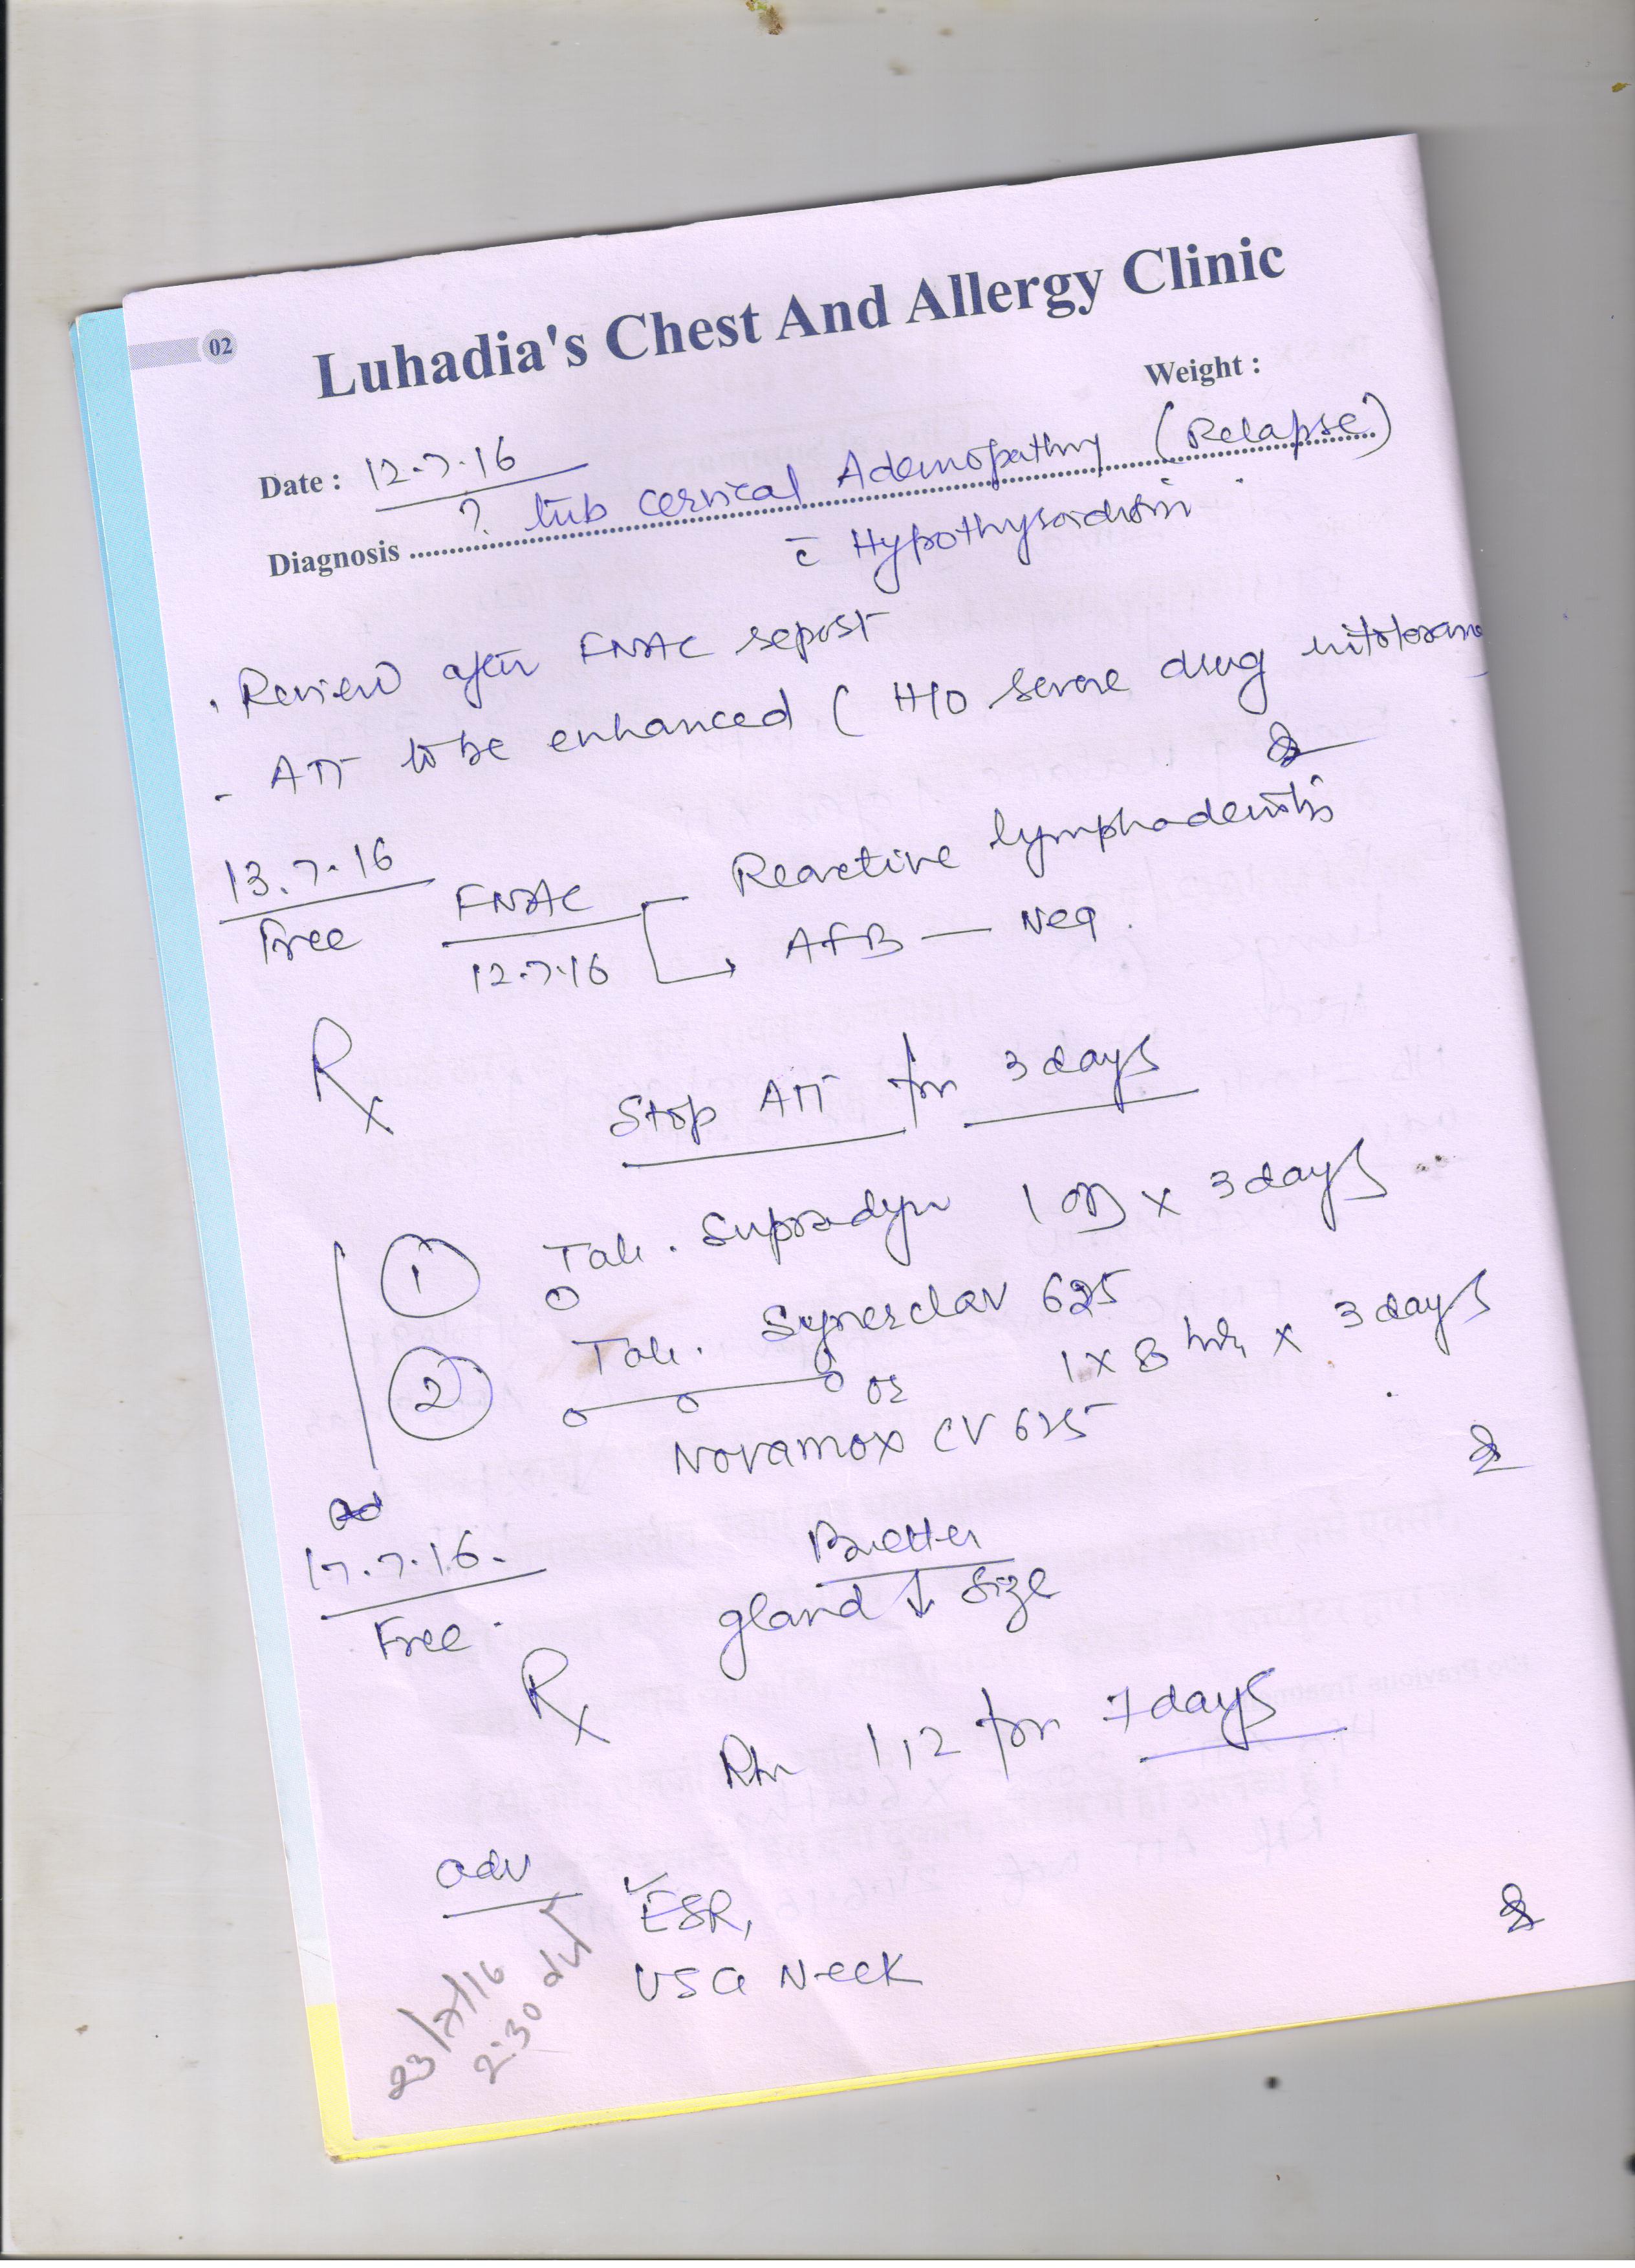 02
Luhadia's Chest And Allergy Clinic
Weight :
Date : 12.7.16
Diagnosis ? tub cervical Adenopathy (Relapse)
c̄ Hypothyroidism
. Review after FNAC report
- ATT to be enhanced ( H/O severe drug
13.7.16
Free
FNAC
12.7.16
Reactive lymphadenitis
AFB — Neg.
Rx
Stop ATT for 3 days
1 Tab. Supradyn 1 OD x 3 days
2 Tab. Synerclav 625
1 x 8 hrly x 3 days
or
Novamox CV 625
17.7.16.
Free.
Better
gland ↓ size
Rx
Rx 1,2 for 7 days
adv
ESR,
USG Neck
23/7/16
2:30